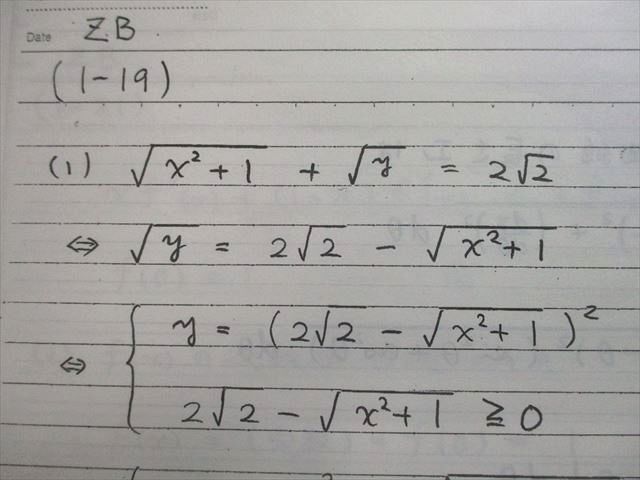 Date ZB
(1-19)
(1) √(x²+1) + √y = 2√2
⇔ √y = 2√2 - √(x²+1)
⇔ { y = (2√2 - √(x²+1))²
2√2 - √(x²+1) ≧ 0